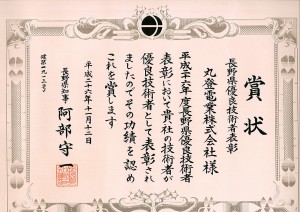 賞状
長野県優良技術者表彰
丸登電業株式会社様
平成二十六年度長野県優良技術者
表彰において貴社の技術者が
優良技術者として表彰され
ましたのでその功績を認め
これを賞します
平成二十六年十一月十二日
長野県知事 阿部守一